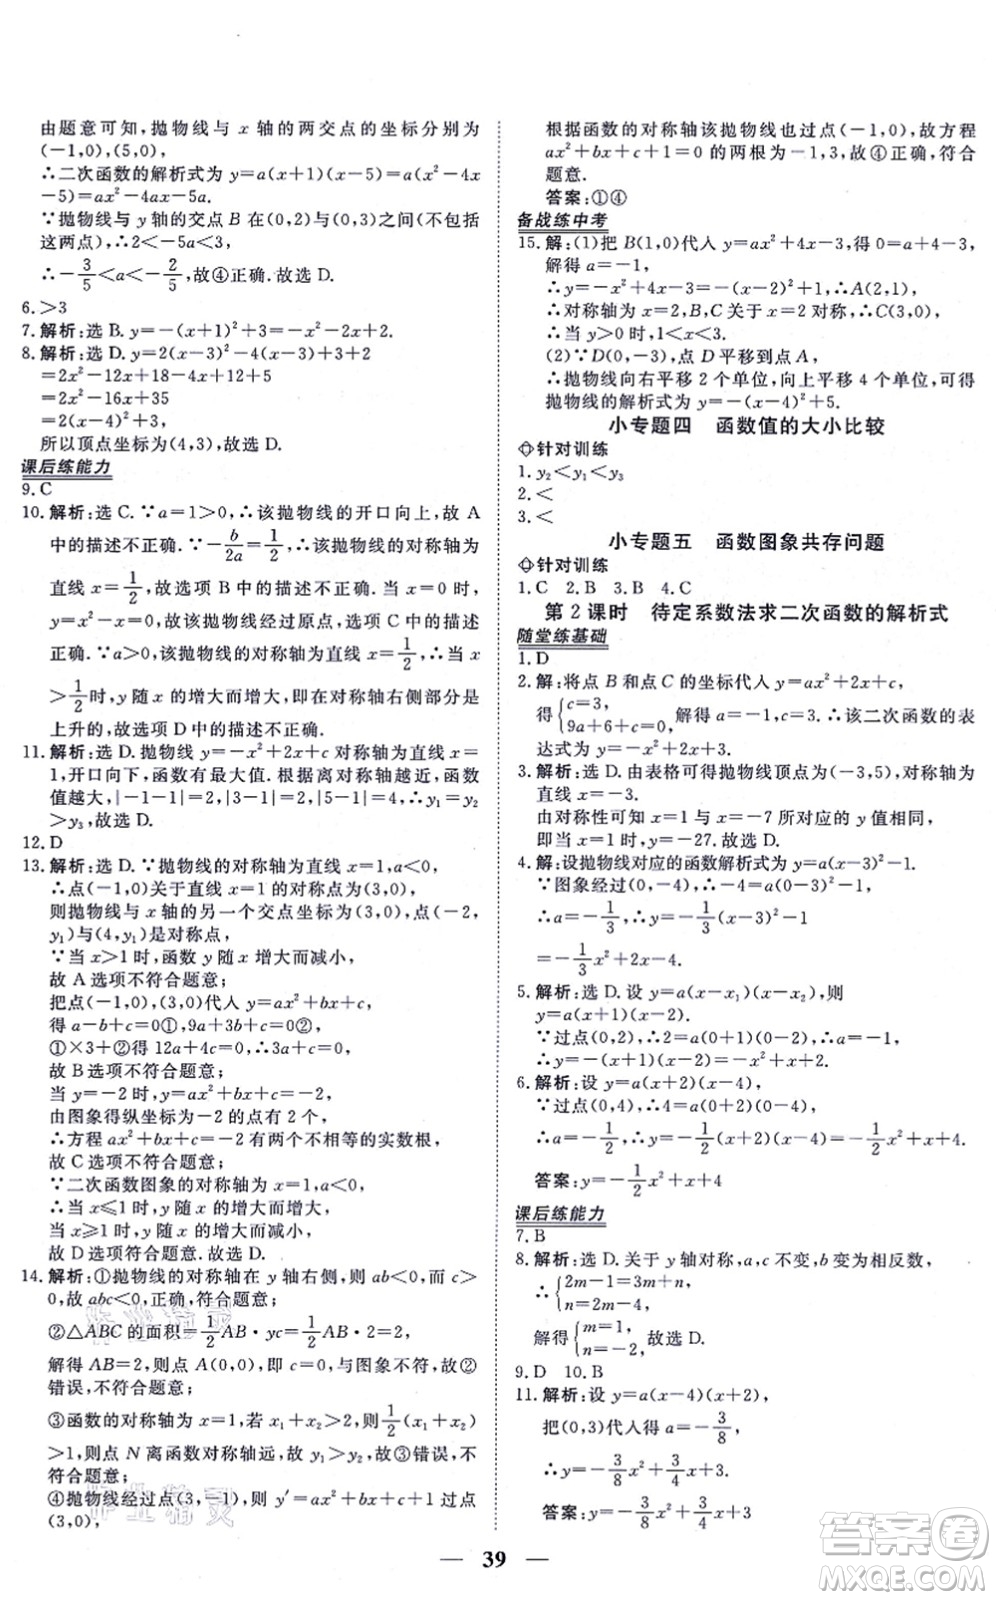 由题意可知,抛物线与 x 轴的两交点的坐标分别为
(-1,0),(5,0),
∴二次函数的解析式为 y=a(x+1)(x-5)=a(x²-4x
-5)=ax²-4ax-5a.
∵抛物线与 y 轴的交点 B 在(0,2)与(0,3)之间(不包括
这两点),∴2<-5a<3,
∴-3/5<a<-2/5,故④正确.故选 D.
6.>3
7.解析:选 B. y=-(x+1)²+3=-x²-2x+2.
8.解析:选 D. y=2(x-3)²-4(x-3)+3+2
=2x²-12x+18-4x+12+5
=2x²-16x+35
=2(x-4)²+3,
所以顶点坐标为(4,3),故选 D.
课后练能力
9.C
10.解析:选 C.∵a=1>0,∴该抛物线的开口向上,故 A
中的描述不正确.∵-b/2a=1/2,∴该抛物线的对称轴为
直线 x=1/2,故选项 B 中的描述不正确.当 x=0 时,
y=0,故该抛物线经过原点,故选项 C 中的描述正确.∵a=1>0,该抛物线的对称轴为直线 x=1/2,∴当 x
>1/2时,y 随 x 的增大而增大,即在对称轴右侧部分是
上升的,故选项 D 中的描述不正确.
11.解析:选 D.抛物线 y=-x²+2x+c 对称轴为直线 x=
1,开口向下,函数有最大值.根据离对称轴越近,函数
值越大,|-1-1|=2,|3-1|=2,|5-1|=4,∴y₁=y₂
>y₃,故选 D.
12.D
13.解析:选 D.∵抛物线的对称轴为直线 x=1,a<0,
∴点(-1,0)关于直线 x=1 的对称点为(3,0),
则抛物线与 x 轴的另一个交点坐标为(3,0),点(-2,
y₁)与(4,y₁)是对称点,
∵当 x>1 时,函数 y 随 x 增大而减小,
故 A 选项不符合题意;
把点(-1,0),(3,0)代入 y=ax²+bx+c
得 a-b+c=0①,9a+3b+c=0②,
①×3+②得 12a+4c=0,∴3a+c=0,
故 B 选项不符合题意;
当 y=-2 时,y=ax²+bx+c=-2,
由图象得纵坐标为-2 的点有 2 个,
∴方程 ax²+bx+c=-2 有两个不相等的实数根,
故 C 选项不符合题意;
∵二次函数图象的对称轴为 x=1,a<0,
∴当 x≤1 时,y 随 x 的增大而增大,
当 x≥1 时,y 随 x 的增大而减小,
故 D 选项符合题意.故选 D.
14.解析:①抛物线的对称轴在 y 轴右侧,则 ab<0,而 c>
0,故 abc<0,正确,符合题意;
②△ABC 的面积=1/2AB·yc=1/2×AB×3=3,
解得 AB=2,则点 A(0,0),即 c=0,与图象不符,故②
错误,不符合题意;
③函数的对称轴为 x=1,若 x₁+x₂>2,则1/2(x₁+x₂)
>1,则点 N 离函数对称轴远,故 y₁>y₂,故③错误,不
符合题意;
④抛物线经过点(3,-1),则 y′=ax²+bx+c+1 过点
(3,0),
根据函数的对称轴该抛物线也过点(-1,0),故方程
ax²+bx+c+1=0 的两根为-1,3,故④正确,符合
题意.
答案:①④
备战练中考
15.解:(1)把 B(1,0)代入 y=ax²+4x-3,得 0=a+4-3,
解得 a=-1,
∴y=-x²+4x-3=-(x-2)²+1,∴A(2,1),
∵对称轴为 x=2,B,C 关于 x=2 对称,∴C(3,0),
∴当 y>0 时,1<x<3.
(2)∵D(0,-3),点 D 平移到点 A,
∴抛物线向右平移 2 个单位,向上平移 4 个单位,可得
抛物线的解析式为 y=-(x-4)²+5.
小专题四 函数值的大小比较
针对训练
1.y₂<y₁<y₃
2.<
3.<
小专题五 函数图象共存问题
针对训练
1.C 2.B 3.B 4.C
第 2 课时 待定系数法求二次函数的解析式
随堂练基础
1.D
2.解:将点 B 和点 C 的坐标代入 y=ax²+2x+c,
得{c=3, 9a+6+c=0, 解得 a=-1,c=3.∴该二次函数的表
达式为 y=-x²+2x+3.
3.解析:选 D.由表格可得抛物线顶点为(-3,5),对称轴为
直线 x=-3.
由对称性可知 x=1 与 x=-7 时函数值相等,
即当 x=1 时,y=-27.故选 D.
4.解:设抛物线对应的函数解析式为 y=a(x-3)²-1.
∵图象经过点(0,-4),∴-4=a(0-3)²-1,
∴a=-1/3,∴y=-1/3(x-3)²-1
=-1/3x²+2x-4.
5.解析:选 D.设 y=a(x-x₁)(x-x₂),则
y=a(x+1)(x-2).
∵过点(0,2),∴2=a(0+1)(0-2),∴a=-1,
∴y=-(x+1)(x-2)=-x²+x+2.
6.解析:设 y=a(x+2)(x-4),
∵过点(0,4),∴4=a(0+2)(0-4),
∴a=-1/2,∴y=-1/2(x+2)(x-4)=-1/2x²+x+4.
答案:y=-1/2x²+x+4
课后练能力
7.B
8.解析:选 D.关于 y 轴对称,a,c 不变,b 变为相反数,
∴{2m-1=3m+n, n=2n-4, 
解得{m=1, n=-2, 故选 D.
9.D 10.B
11.解析:设 y=a(x-4)(x+2),
把(0,3)代入得 a=-3/8,
∴y=-3/8x²+3/4x+3.
答案:y=-3/8x²+3/4x+3
39